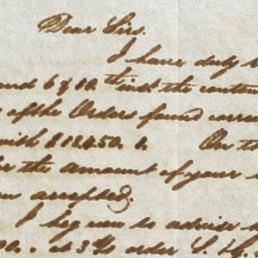 Dear Sirs.
I have duly
and 6 & 10. inst the conten
of the Orders found corre
with $12450.
the amount of your
accepted.
I beg now to advise
at 3 Ys order S.